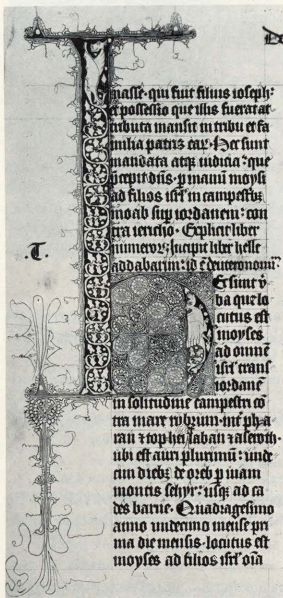 De
nasse· qui fuit filius ioseph:
et possessio que illis fuerat at
tributa mansit in tribu et fa
milia patris ear· Hec sunt
mandata atqʒ iudicia: que
p̄cepit dn̄s· ꝑ manū moysi
ad filios isrl̄ in campestribʒ
moab sup̄ iordanem: con
tra iericho· Explicit liber
numerorʒ: Incipit liber helle
addabarim: id ē deuteronomiꝰ·
·T·
Ec sunt ṽ
ba que lo
cutus est
moyses
ad omnē
isrl̄ trans
iordanē
in solitudine campestri cō
tra mare rubrum· int̄ pha
ran ⁊ tophel ⁊ laban ⁊ aseroth·
ubi est auri plurimū: unde
cim diebʒ de oreb ꝑ uiam
montis sehyr: usqʒ ad ca
des barne· Quadragesimo
anno undecimo mense pri
ma die mensis· locutus est
moyses ad filios isrl̄ oīa